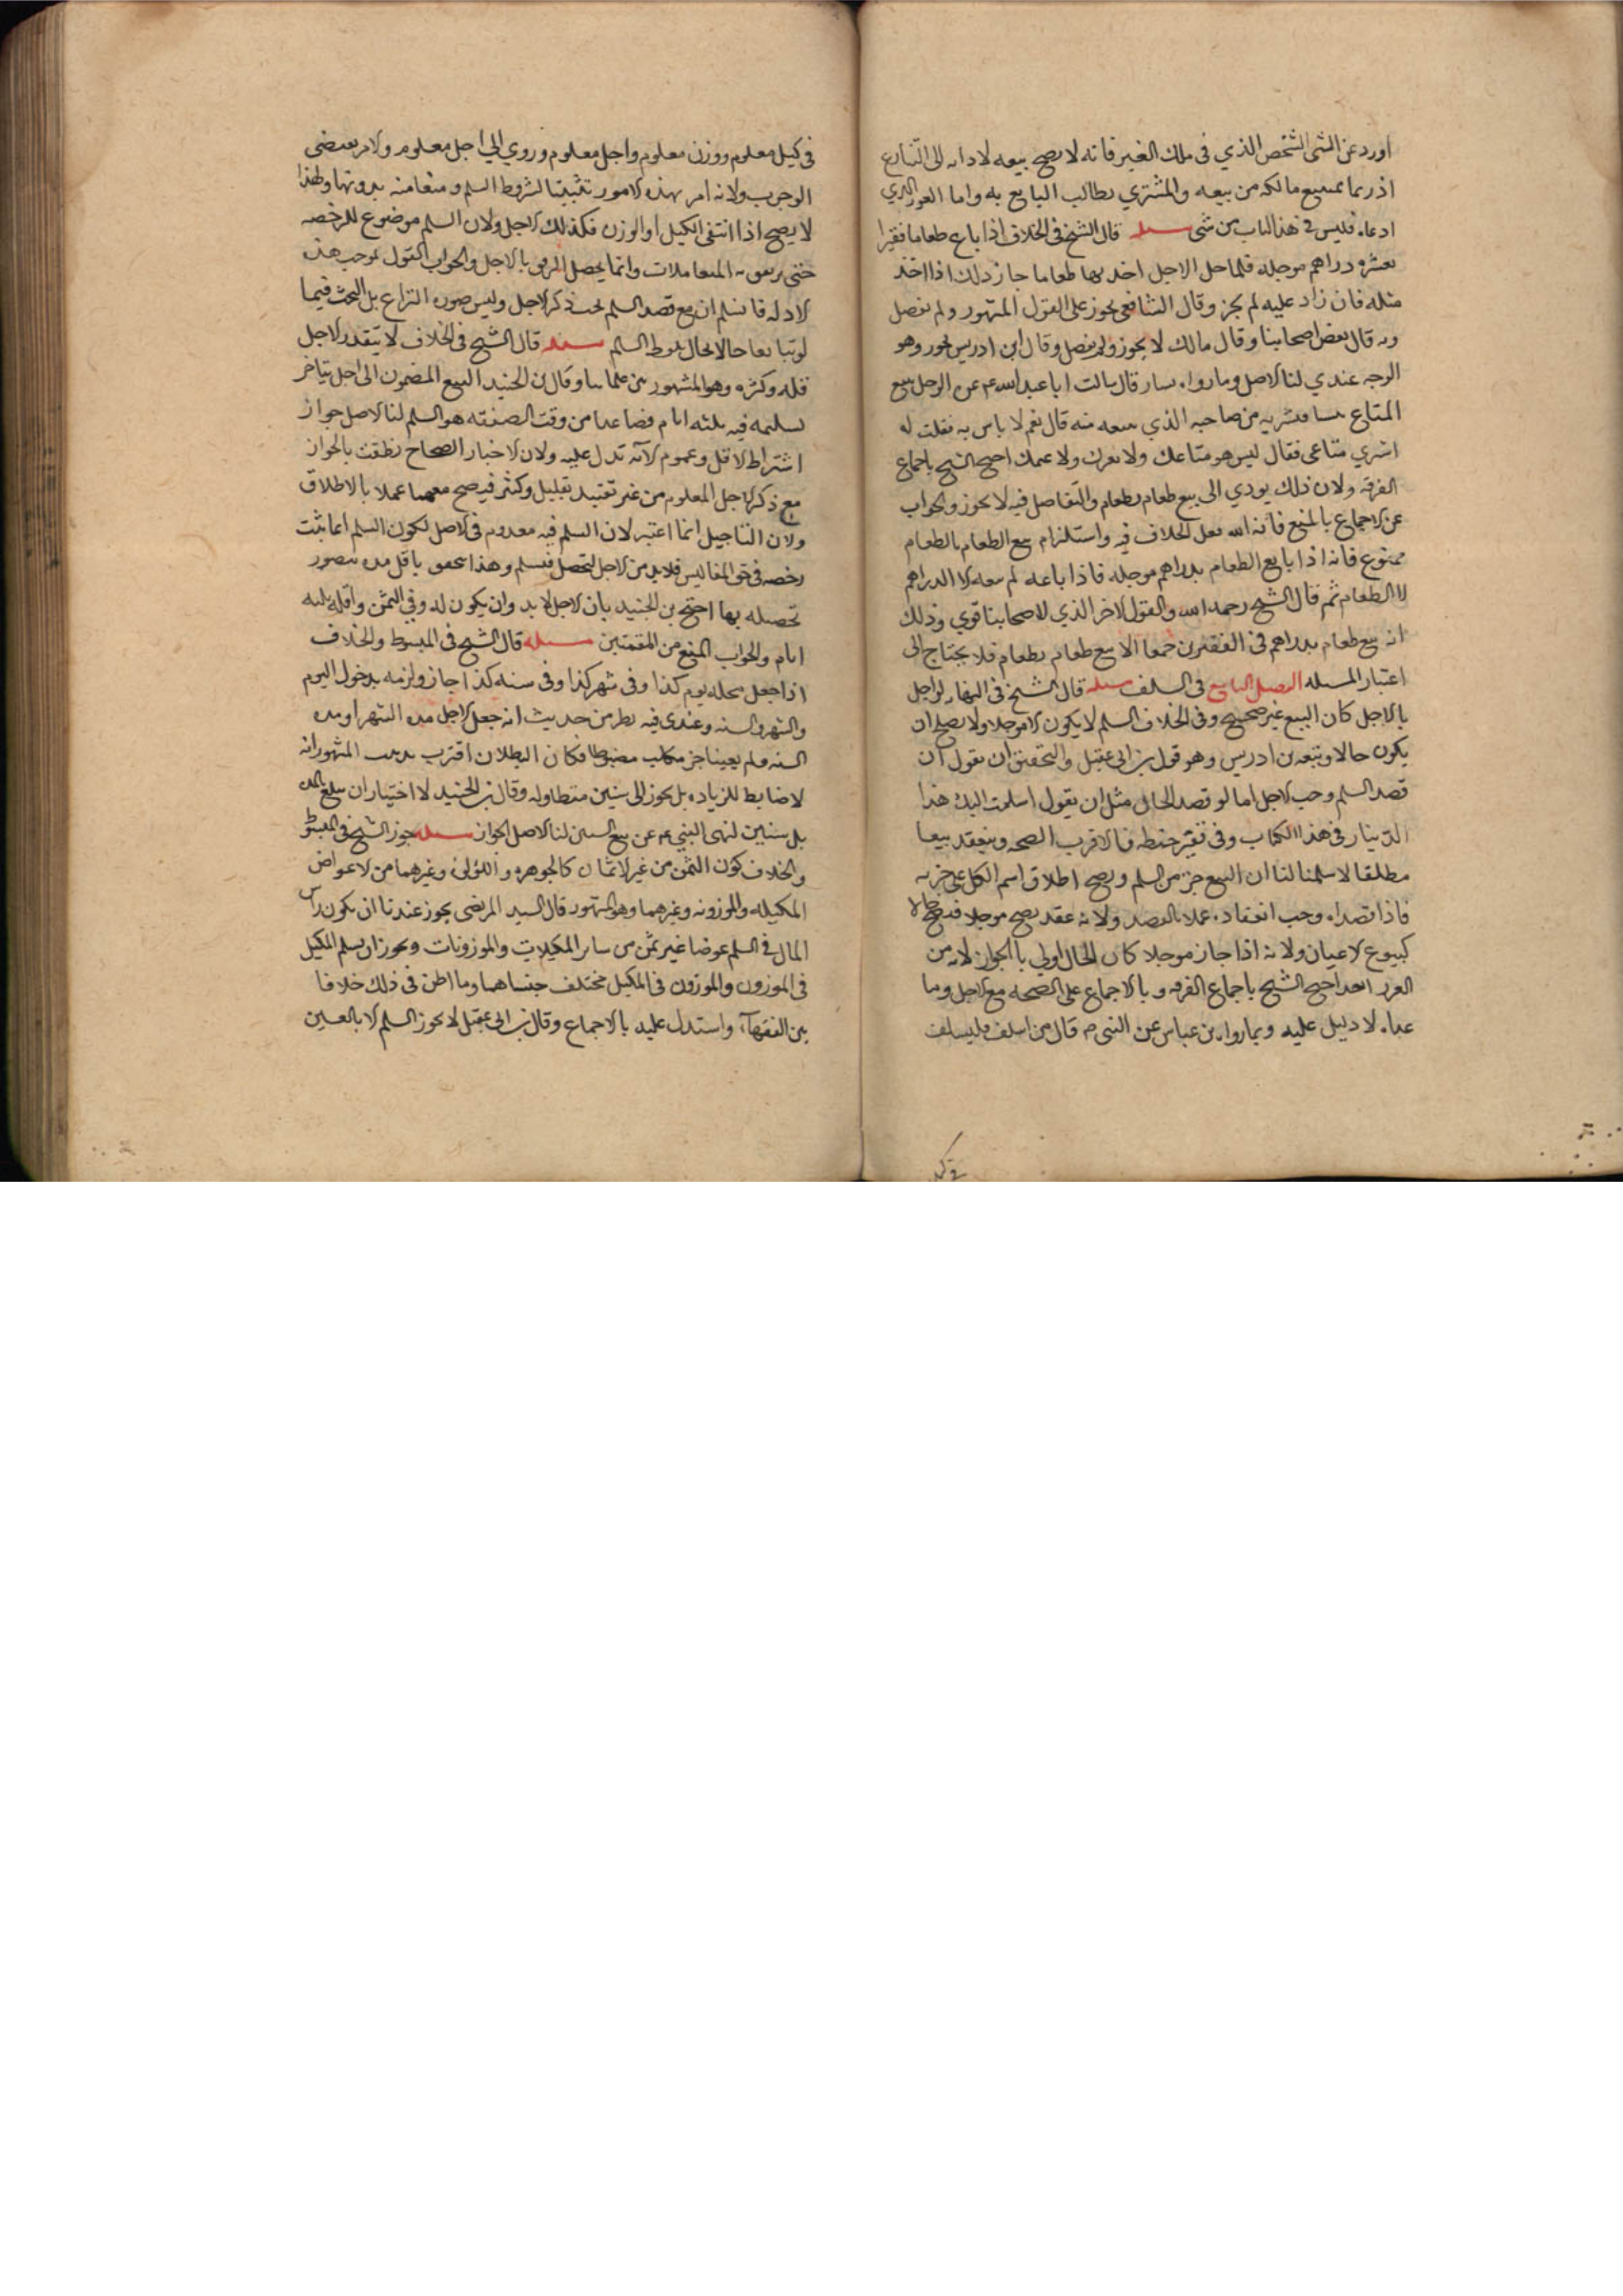 اورد عن الشى الشخص الذي فى ملك الغير فانه لا يصح بيعه لادايه الى التنازع
اذ ربما يمتنع مالكه من بيعه والمشتري يطالب البايع به واما الغرر الذي
ادعاه فليس فى هذا الباب من شى مسله قال الشيخ فى الخلاف اذا باع طعاما قفيزا
بعشره دراهم موجله فلما حل الاجل اخذ بها طعاما جاز ذلك اذا اخذ
مثله فان زاد عليه لم يجز وقال الشافعى يجوز على القول المشهور ولم يفصل
وبه قال بعض اصحابنا وقال مالك لا يجوز ولم يفصل وقال ابن ادريس يجوز وهو
الوجه عندي لنا الاصل وما رواه يسار قال سالت ابا عبد الله ع عن الرجل يبيع
المتاع نسا فيشتريه من صاحبه الذي يبيعه منه قال نعم لا باس به فقلت له
اشتري متاعى فقال ليس هو متاعك ولا بقرك ولا غنمك احتج الشيخ باجماع
الفرقه ولان ذلك يودي الى بيع طعام بطعام والتفاضل فيه لا يجوز والجواب
عن الاجماع بالمنع فانه الله نقل الخلاف فيه واستلزام بيع الطعام بالطعام
ممنوع فانه اذا بايع الطعام بدراهم موجله فاذا باعه لم يبعه الا الدراهم
لا الطعام ثم قال الشيخ رحمه الله والقول الاخر الذي لاصحابنا قوي وذلك
انه بيع طعام بدراهم فى القفيزين جمعا لا بيع طعام بطعام فلا يحتاج الى
اعتبار المسله الفصل السابع فى السلف مسله قال الشيخ فى النهايه لو اخل
بالاجل كان البيع غير صحيح وفى الخلاف السلم لا يكون الا موجلا ولا يصح ان
يكون حالا وتبعه بن ادريس وهو قول بن ابى عقيل والتحقيق ان نقول ان
قصد السلم وجب الاجل اما لو قصد الحال مثل ان يقول اسلمت اليك هذا
الدينار فى هذا الكتاب وفى قفيز حنطه فالاقرب الصحه وينعقد بيعا
مطلقا لا سلما لنا ان البيع جز من السلم ويصح اطلاق اسم الكل على جزيه
فاذا قصداه وجب انعقاده عملا بالقصد ولانه عقد يصح موجلا فيصح حالا
كبيوع الاعيان ولانه اذا جاز موجلا كان الحال اولى بالجواز لانه من
الغرر ابعد احتج الشيخ باجماع الفرقه وبالاجماع على الصحه مع الاجل وما
عداه لا دليل عليه وبما رواه بن عباس عن النبى م قال من اسلف فليسلف
فى كيل
فى كيل معلوم ووزن معلوم واجل معلوم وروي الى اجل معلوم والامر يقتضى
الوجوب ولانه امر بهذه الامور تثبيتا لشروط السلم ومنعا منه بدونها ولهذا
لا يصح اذا انتفى الكيل او الوزن فكذلك الاجل ولان السلم موضوع للرخصه
حتى يرتفق به المتعاملات وانما يحصل الرفق بالاجل والجواب القول بموجب هذه
الادله فانا نسلم ان مع قصد السلم يجب ذكر الاجل وليس صوره النزاع بل البحث فيما
لو تبايعا حالا بحال بلفظ السلم مسله قال الشيخ فى الخلاف لا يتقدر الاجل
قله وكثره وهو المشهور من علماينا وقال بن الجنيد البيع المضمون الى اجل يتاخر
تسليمه فيه ثلثه ايام فصاعدا من وقت الصفقه هو السلم لنا الاصل جواز
اشتراط الاقل وعموم الآيه تدل عليه ولان الاخبار الصحاح نطقت بالجواز
مع ذكر الاجل المعلوم من غير تقييد بقليل وكثير فيصح معهما عملا بالاطلاق
ولان التاجيل انما اعتبر لان السلم فيه معدوم فى الاصل لكون السلم انما يثبت
رخصه فى حق المفاليس فلا بد من الاجل لتحصل فتسلم وهذا يتحقق باقل مده يتصور
تحصيله بها احتج بن الجنيد بان الاجل لا بد وان يكون له وقع فى الثمن واقله ثلثه
ايام والجواب المنع من المقدمتين مسله قال الشيخ فى المبسوط والخلاف
اذا جعل محله يوم كذا وفى شهر كذا وفى سنه كذا جاز ولزمه بدخول اليوم
والشهر والسنه وعندي فيه نظر من حديث انه جعل الاجل مده الشهر او مده
السنه ولم يعينا جز منها مضبوطا فكان البطلان اقرب مذهب المشهور انه
لا ضابط للزياده بل يجوز الى سنين متطاوله وقال بن الجنيد لا اختيار ان يبلغ بالمده
بل سنين لنهى النبى ع عن بيع السنين لنا الاصل الجواز مسله جوز الشيخ فى المبسوط
والخلاف كون الثمن من غير الاثمان كالجوهره واللؤلؤ وغيرهما من الاعواض
المكيله والموزونه وغيرهما وهو المشهور قال السيد المرتضى يجوز عندنا ان يكون راس
المال فى السلم عوضا غير ثمن من ساير المكيلات والموزونات ويجوز ان يسلم المكيل
فى الموزون والموزون فى المكيل مختلف جنساهما وما اظن فى ذلك خلافا
بين الفقهآء واستدل عليه بالاجماع وقال بن ابى عقيل لا يجوز السلم الا بالعين